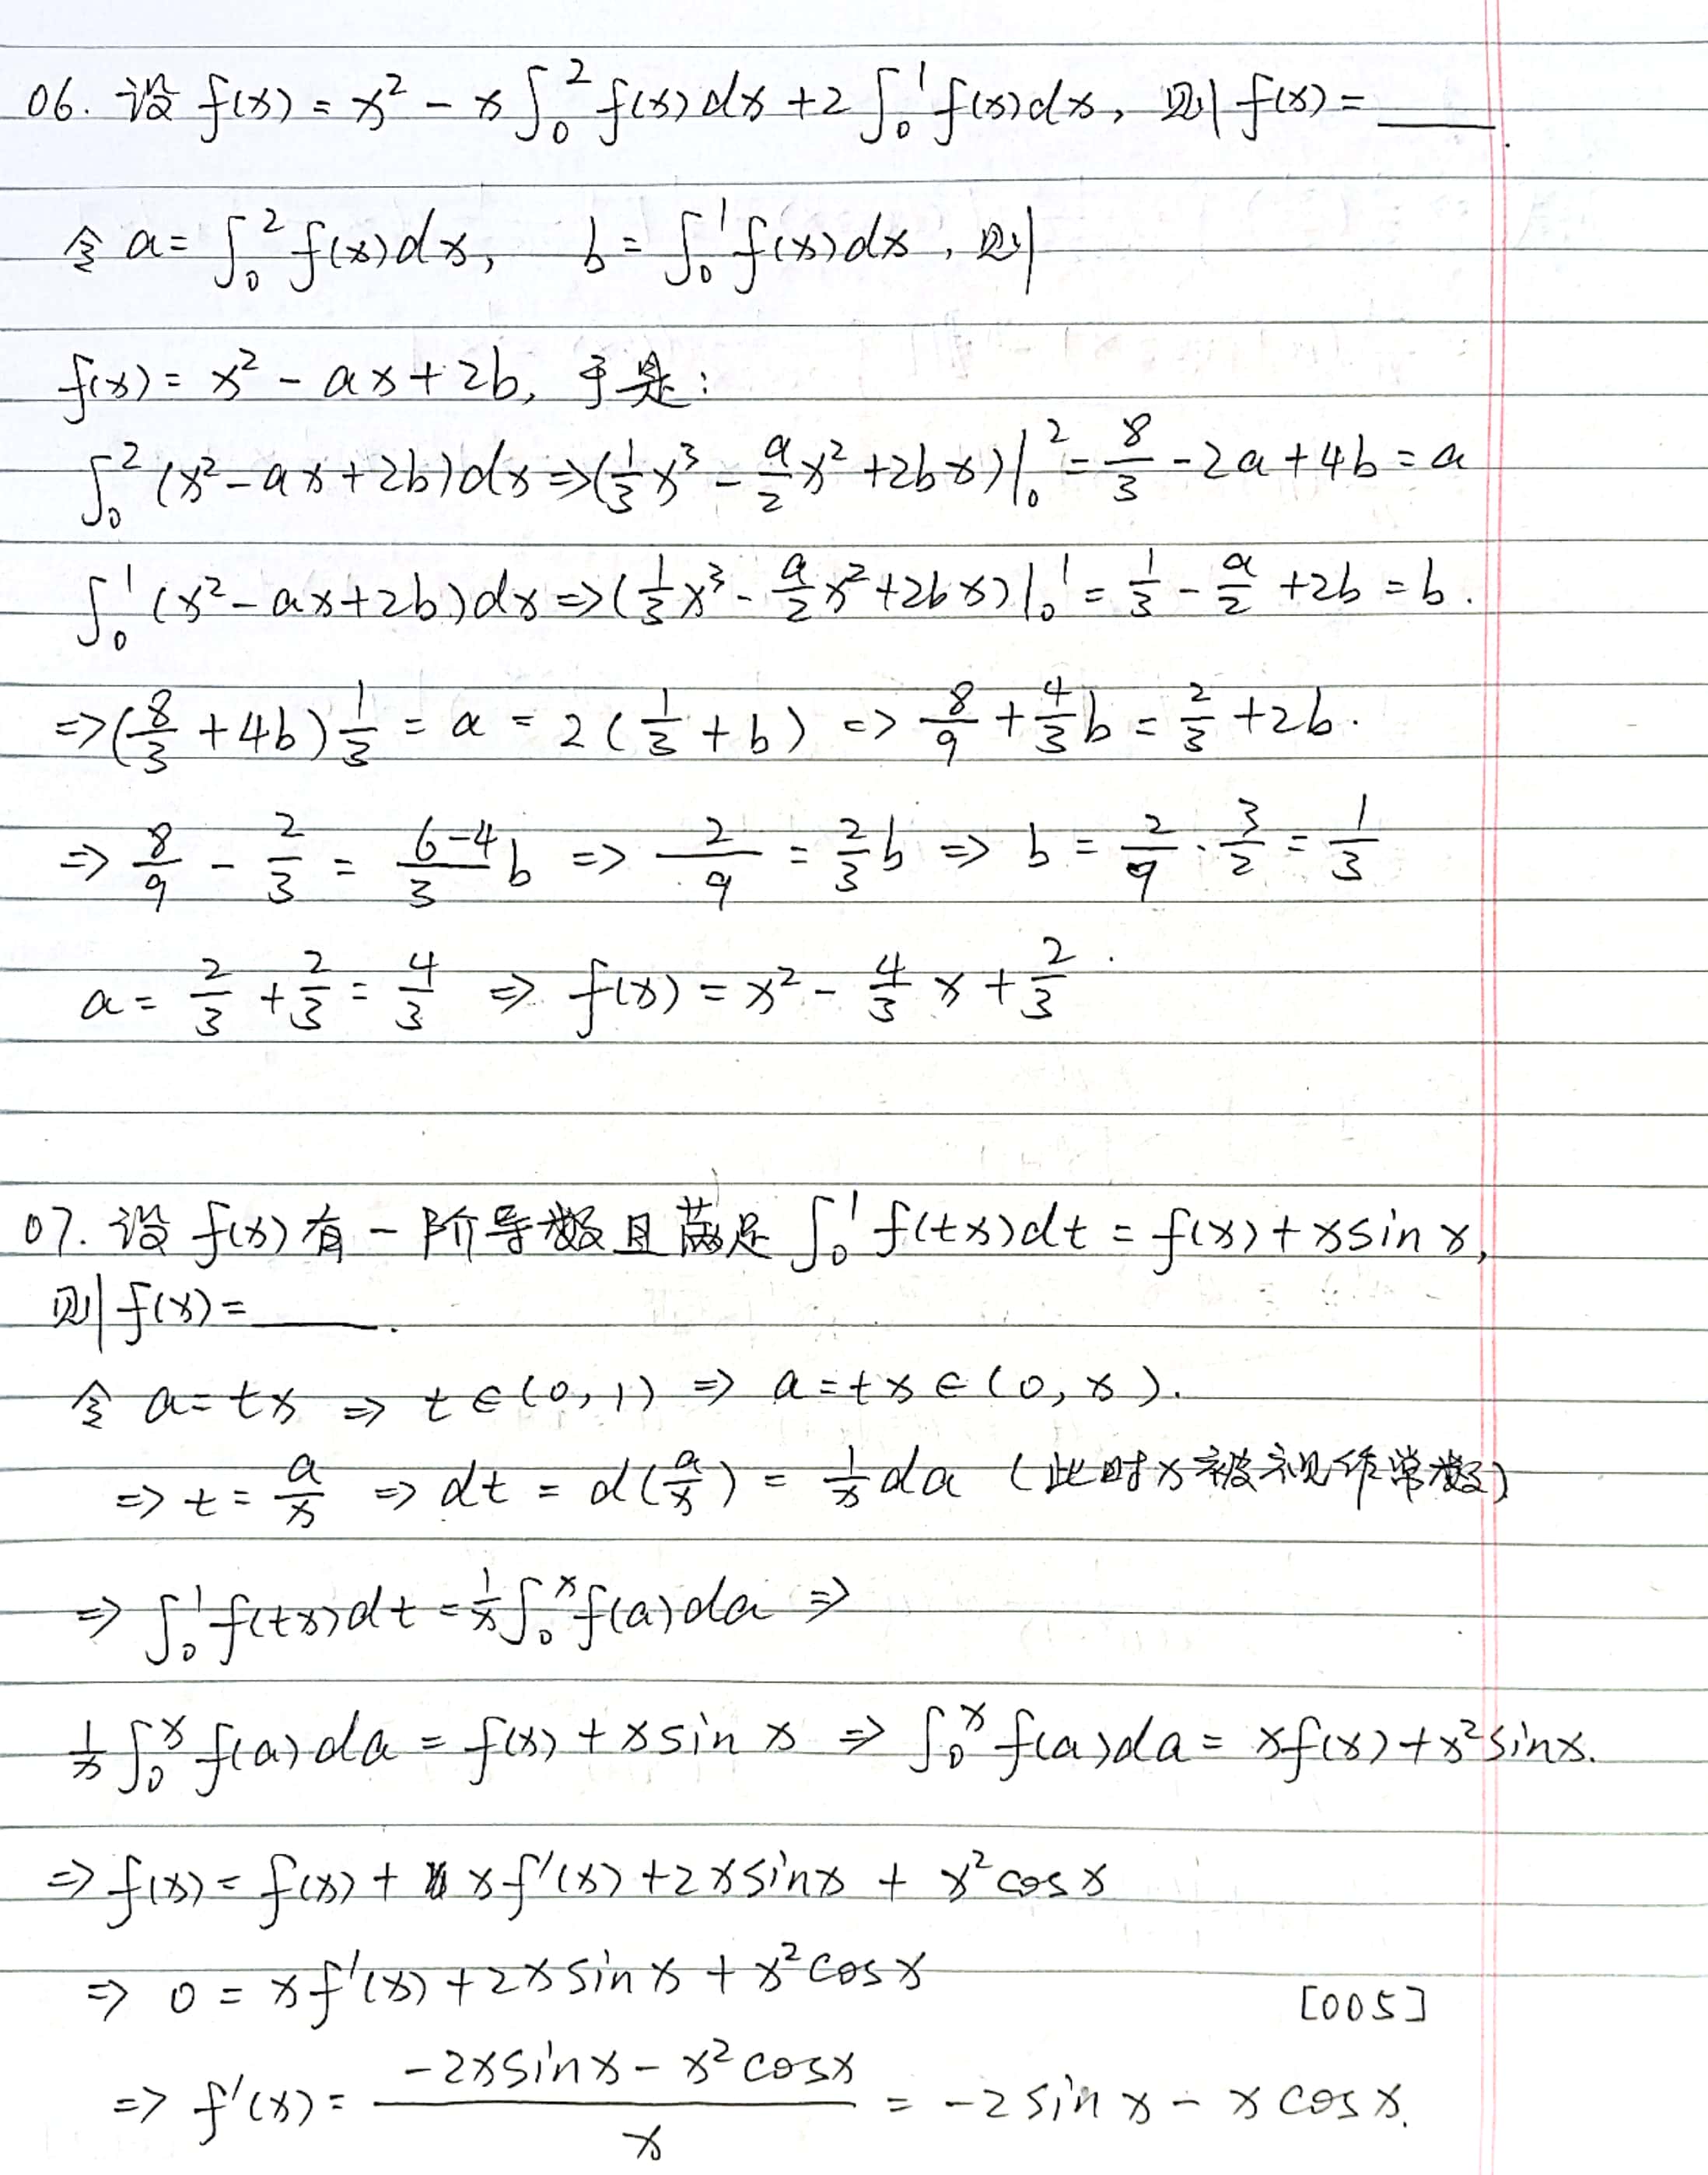 06. 设 f(x) = x² - x∫₀² f(x)dx + 2∫₀¹ f(x)dx, 则 f(x) = ____.
令 a = ∫₀² f(x)dx, b = ∫₀¹ f(x)dx, 则
f(x) = x² - ax + 2b, 于是:
∫₀² (x² - ax + 2b)dx ⇒ (1/3 x³ - a/2 x² + 2bx)|₀² = 8/3 - 2a + 4b = a
∫₀¹ (x² - ax + 2b)dx ⇒ (1/3 x³ - a/2 x² + 2bx)|₀¹ = 1/3 - a/2 + 2b = b.
⇒ (8/3 + 4b) 1/3 = a = 2(1/3 + b) ⇒ 8/9 + 4/3 b = 2/3 + 2b.
⇒ 8/9 - 2/3 = (6-4)/3 b ⇒ 2/9 = 2/3 b ⇒ b = 2/9 · 3/2 = 1/3
a = 2/3 + 2/3 = 4/3 ⇒ f(x) = x² - 4/3 x + 2/3.
07. 设 f(x) 有一阶导数且满足 ∫₀¹ f(tx)dt = f(x) + x sin x,
则 f(x) = ____.
令 a = tx ⇒ t ∈ (0, 1) ⇒ a = tx ∈ (0, x).
⇒ t = a/x ⇒ dt = d(a/x) = 1/x da (此时 x 被视作常数)
⇒ ∫₀¹ f(tx)dt = 1/x ∫₀ˣ f(a)da ⇒
1/x ∫₀ˣ f(a)da = f(x) + x sin x ⇒ ∫₀ˣ f(a)da = xf(x) + x² sin x.
⇒ f(x) = f(x) + xf'(x) + 2x sin x + x² cos x
⇒ 0 = xf'(x) + 2x sin x + x² cos x
[005]
⇒ f'(x) = (-2x sin x - x² cos x)/x = -2 sin x - x cos x.